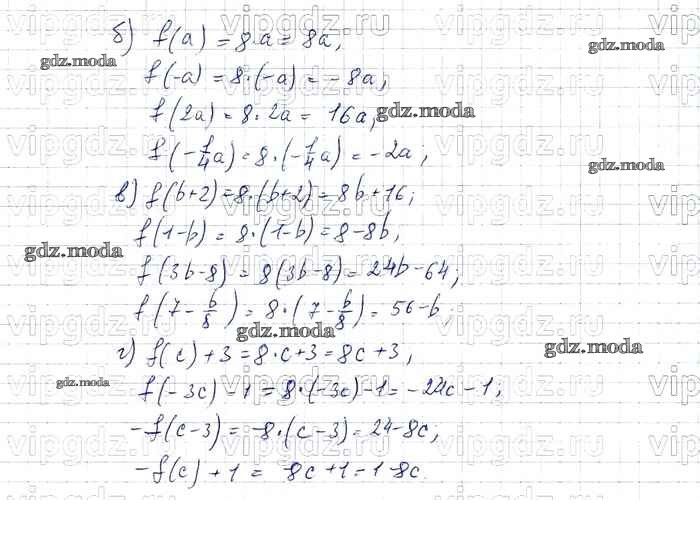 б) f(a) = 8·a = 8a,
f(-a) = 8·(-a) = -8a,
f(2a) = 8·2a = 16a,
f(-1/4a) = 8·(-1/4a) = -2a;
в) f(b+2) = 8·(b+2) = 8b+16;
f(1-b) = 8·(1-b) = 8-8b,
f(3b-8) = 8(3b-8) = 24b-64;
f(7-b/8) = 8·(7-b/8) = 56-b
г) f(c)+3 = 8·c+3 = 8c+3,
f(-3c)-1 = 8·(-3c)-1 = -24c-1;
-f(c-3) = -8·(c-3) = 24-8c;
-f(c)+1 = -8c+1 = 1-8c.
vipgdz.ru
gdz.moda